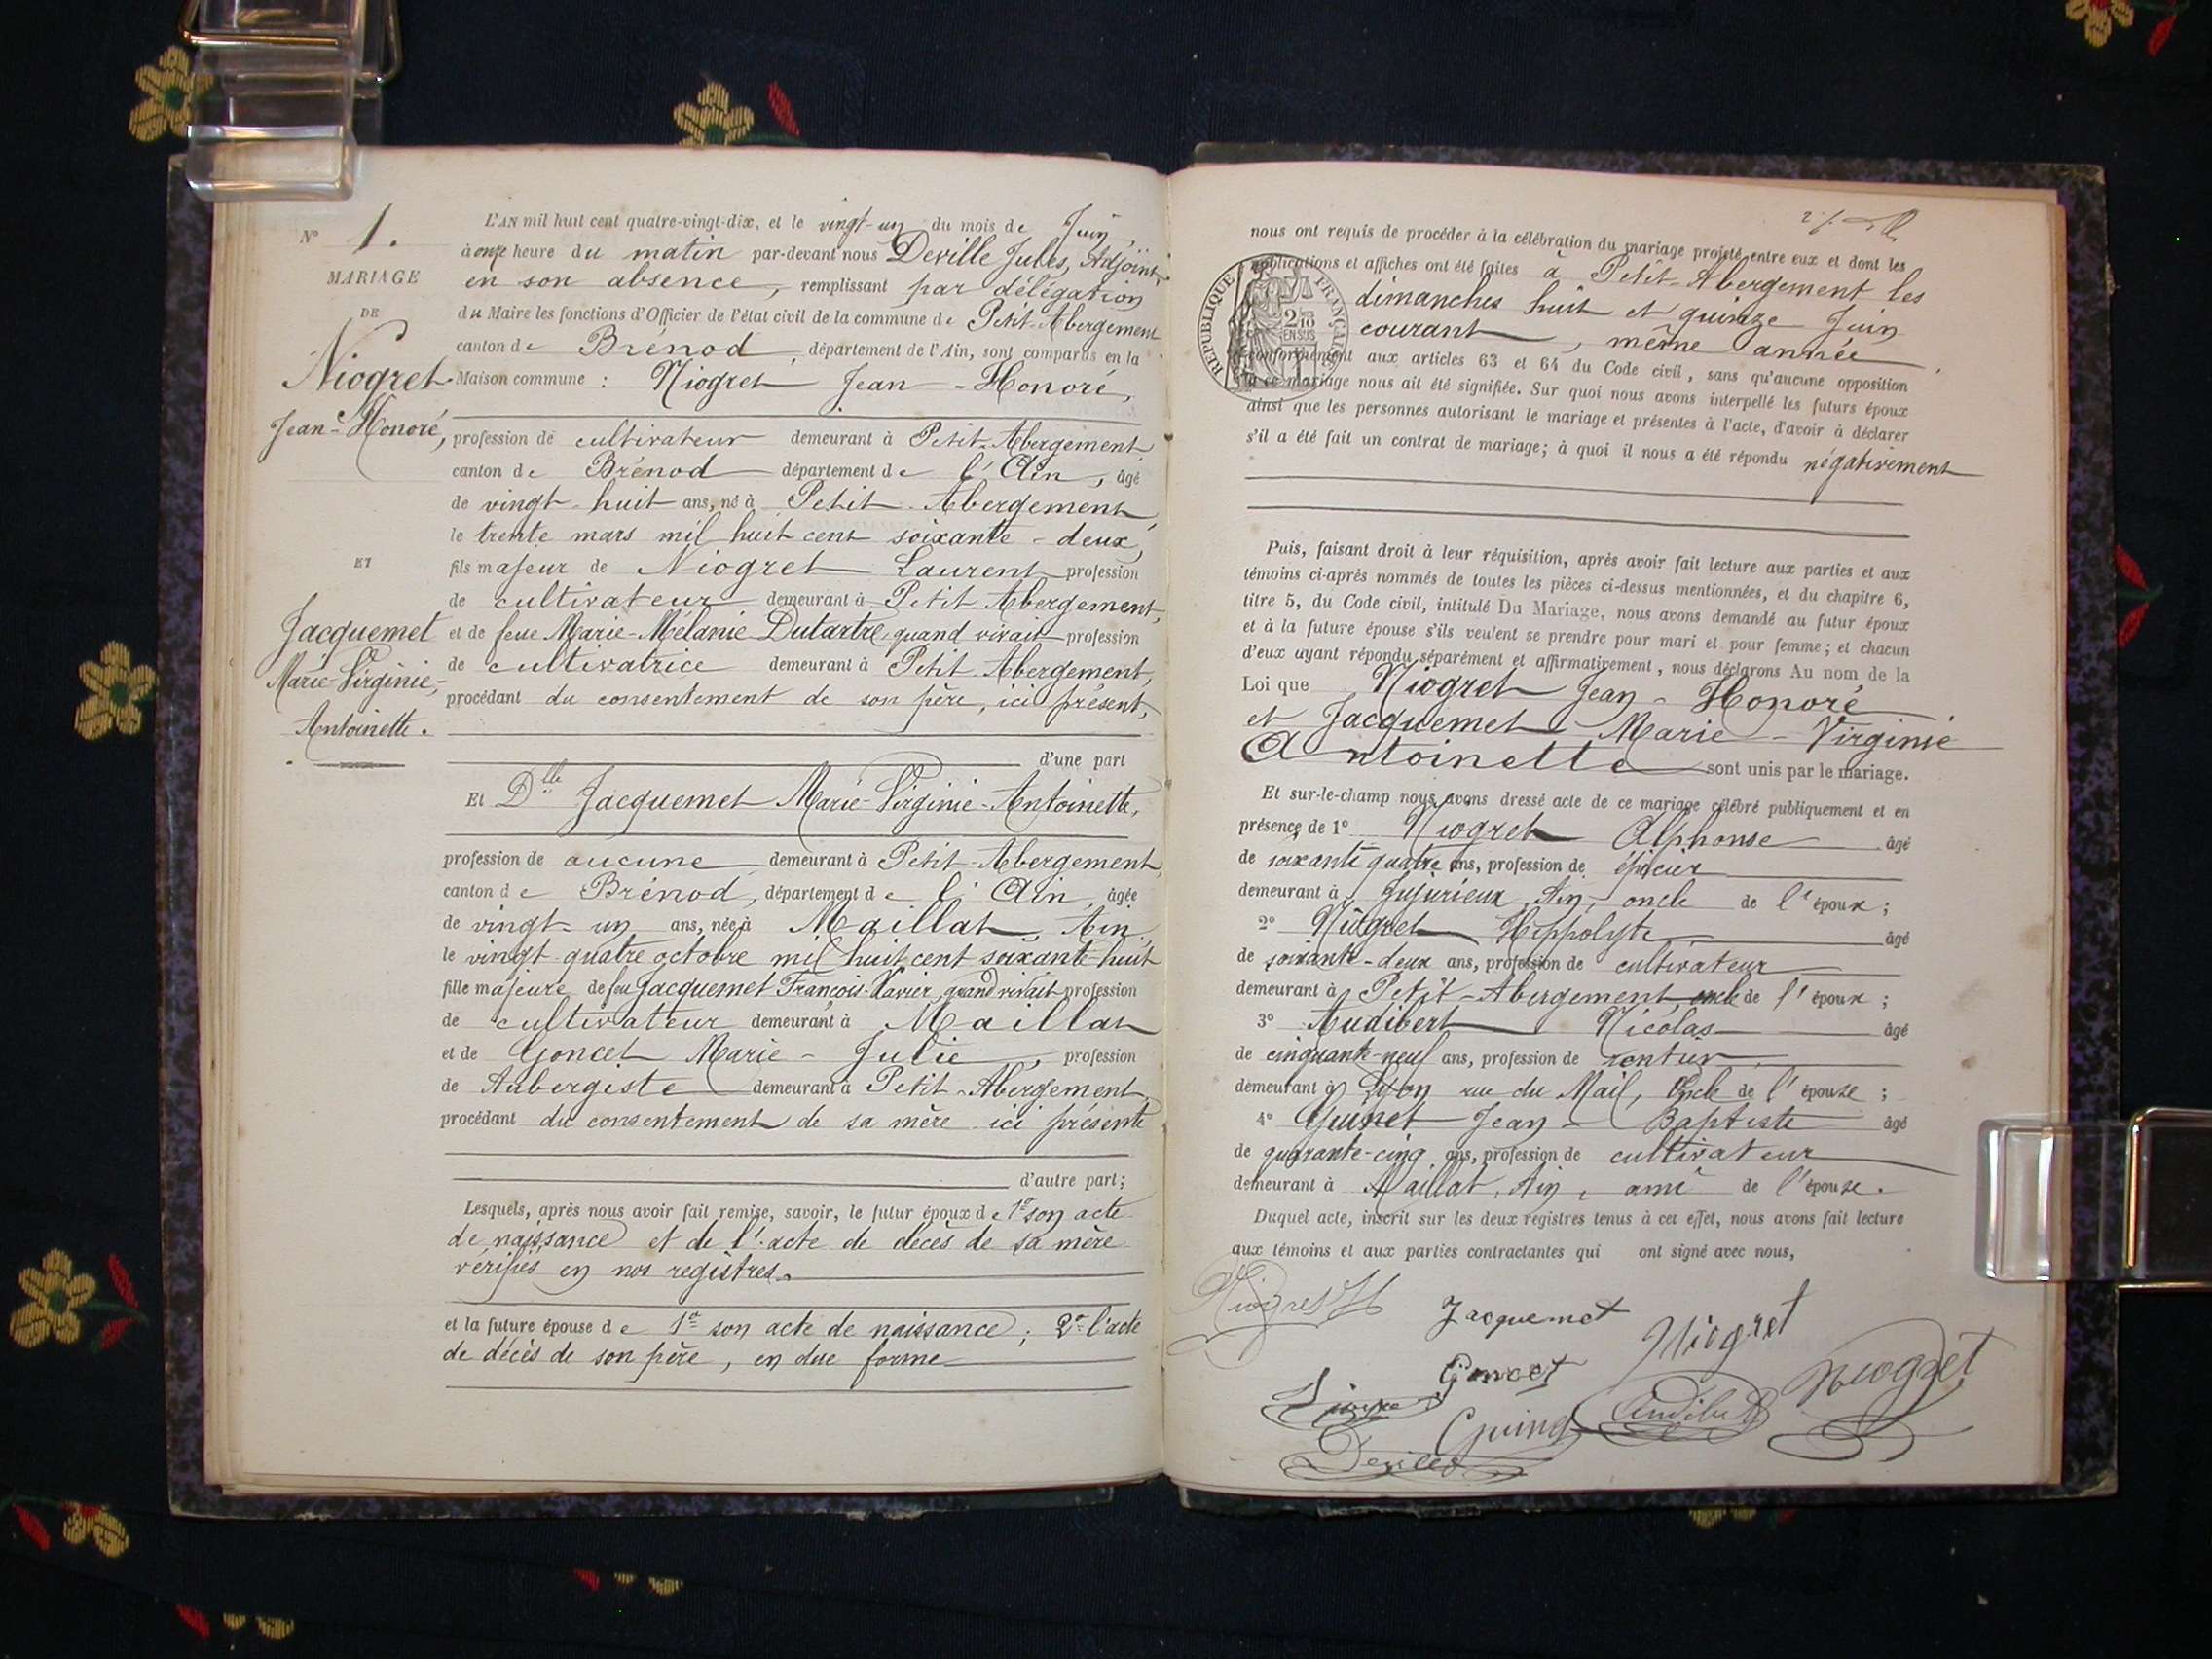 N° 1.
MARIAGE
DE
Niogret
Jean-Honoré,
ET
Jacquemet
Marie-Virginie-
Antoinette.
L'AN mil huit cent quatre-vingt-dix, et le vingt-un du mois de Juin,
à onze heure du matin par-devant nous Deville Jules, Adjoint,
en son absence, remplissant par délégation
du Maire les fonctions d'Officier de l'état civil de la commune de Petit-Abergement
canton de Brénod, département de l'Ain, sont comparus en la
Maison commune : Niogret Jean-Honoré,
profession de cultivateur demeurant à Petit-Abergement
canton de Brénod département de l'Ain, âgé
de vingt-huit ans, né à Petit-Abergement,
le trente mars mil huit cent soixante-deux,
fils majeur de Niogret Laurent profession
de cultivateur demeurant à Petit-Abergement,
et de feue Marie-Mélanie Dutartre, quand vivait profession
de cultivatrice demeurant à Petit-Abergement,
procédant du consentement de son père, ici présent,
d'une part
Et Dlle Jacquemet Marie-Virginie-Antoinette,
profession de aucune demeurant à Petit-Abergement,
canton de Brénod, département de l'Ain, âgée
de vingt-un ans, née à Maillat, Ain,
le vingt-quatre octobre mil huit cent soixante-huit
fille majeure de feu Jacquemet François-Xavier, quand vivait profession
de cultivateur demeurant à Maillat
et de Goncet Marie-Julie, profession
de Aubergiste demeurant à Petit-Abergement,
procédant du consentement de sa mère ici présente
d'autre part;
Lesquels, après nous avoir fait remise, savoir, le futur époux de 1° son acte
de naissance et de l'acte de décès de sa mère
vérifiés en nos registres.
et la future épouse de 1° son acte de naissance; 2° l'acte
de décès de son père, en due forme
nous ont requis de procéder à la célébration du mariage projeté entre eux et dont les
publications et affiches ont été faites à Petit-Abergement les
dimanches huit et quinze Juin
courant, même année
conformément aux articles 63 et 64 du Code civil, sans qu'aucune opposition
à ce mariage nous ait été signifiée. Sur quoi nous avons interpellé les futurs époux
ainsi que les personnes autorisant le mariage et présentes à l'acte, d'avoir à déclarer
s'il a été fait un contrat de mariage; à quoi il nous a été répondu négativement
RÉPUBLIQUE FRANÇAISE
2/10 EN SUS
Puis, faisant droit à leur réquisition, après avoir fait lecture aux parties et aux
témoins ci-après nommés de toutes les pièces ci-dessus mentionnées, et du chapitre 6,
titre 5, du Code civil, intitulé Du Mariage, nous avons demandé au futur époux
et à la future épouse s'ils veulent se prendre pour mari et pour femme; et chacun
d'eux ayant répondu séparément et affirmativement, nous déclarons Au nom de la
Loi que Niogret Jean-Honoré
et Jacquemet-Marie-Virginie
Antoinette sont unis par le mariage.
Et sur-le-champ nous avons dressé acte de ce mariage célébré publiquement et en
présence de 1° Niogret Alphonse âgé
de soixante quatre ans, profession de épicier
demeurant à Jujurieux, Ain, oncle de l'époux;
2° Niogret Hippolyte âgé
de soixante-deux ans, profession de cultivateur
demeurant à Petit-Abergement, oncle de l'époux;
3° Audibert Nicolas âgé
de cinquante-neuf ans, profession de rentier
demeurant à Lyon rue du Mail, Oncle de l'épouse;
4° Guinet Jean-Baptiste âgé
de quarante-cinq ans, profession de cultivateur
demeurant à Maillat, Ain, ami de l'épouse.
Duquel acte, inscrit sur les deux registres tenus à cet effet, nous avons fait lecture
aux témoins et aux parties contractantes qui ont signé avec nous,
Niogret H Jacquemet Niogret
Goncet Niogret
Guinet Audibert
Deville